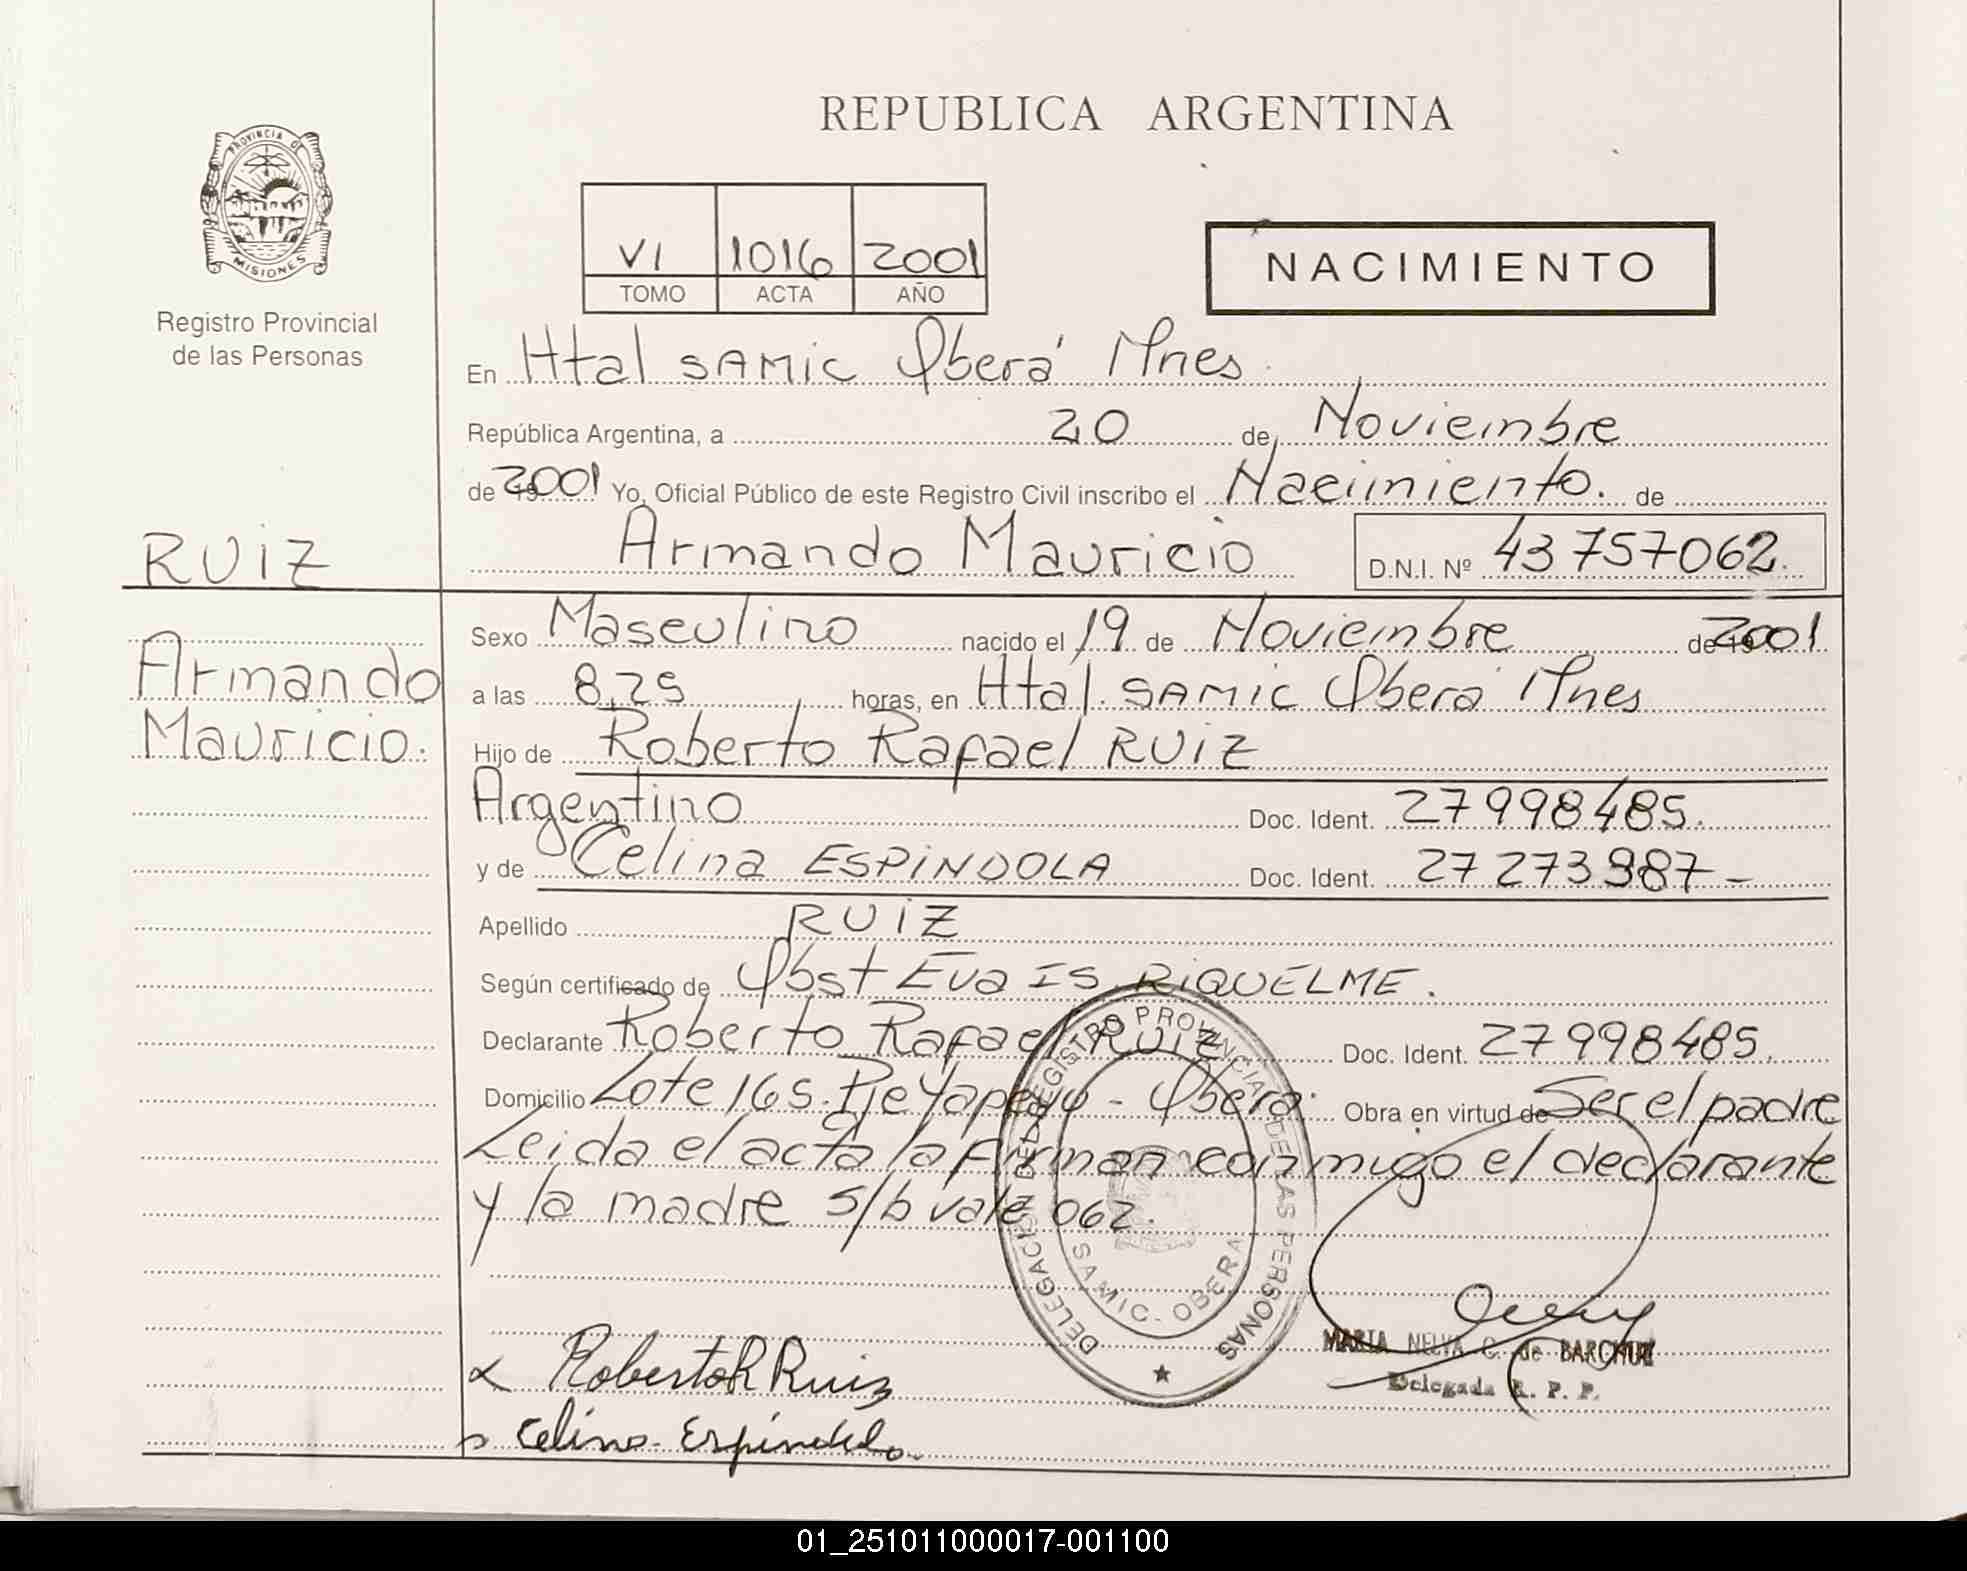 REPUBLICA ARGENTINA
PROVINCIA DE
MISIONES
Registro Provincial
de las Personas
VI 1016 2001
TOMO ACTA AÑO
NACIMIENTO
En Htal SAMIC Oberá Mnes
República Argentina, a 20 de Noviembre
de 2001 Yo, Oficial Público de este Registro Civil inscribo el Nacimiento. de
RUIZ
Armando Mauricio D.N.I. Nº 43757062
Armando
Mauricio.
Sexo Masculino nacido el 19 de Noviembre de 2001
a las 8,25 horas, en Htal. SAMIC Oberá Mnes
Hijo de Roberto Rafael RUIZ
Argentino Doc. Ident. 27998485.
y de Celina ESPINDOLA Doc. Ident. 27273987-
Apellido RUIZ
Según certificado de Obst Eva IS. RIQUELME.
Declarante Roberto Rafael RUIZ Doc. Ident. 27998485.
Domicilio Lote 165. Pje Yapeyu - Oberá. Obra en virtud de Ser el padre
Leida el acta la firman conmigo el declarante
y la madre s/b vale 062.
DELEGACION DEL REGISTRO PROVINCIAL DE LAS PERSONAS
SAMIC - OBERA
MARIA NELVA C. de
Delegada R. P. P.
Roberto R Ruiz
Celina Espindola
01_251011000017-001100